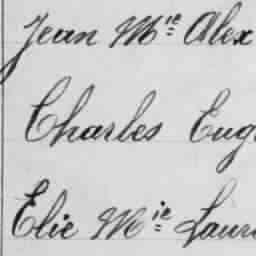 Jean Mie Alex
Charles Eug
Elie Mie Laur